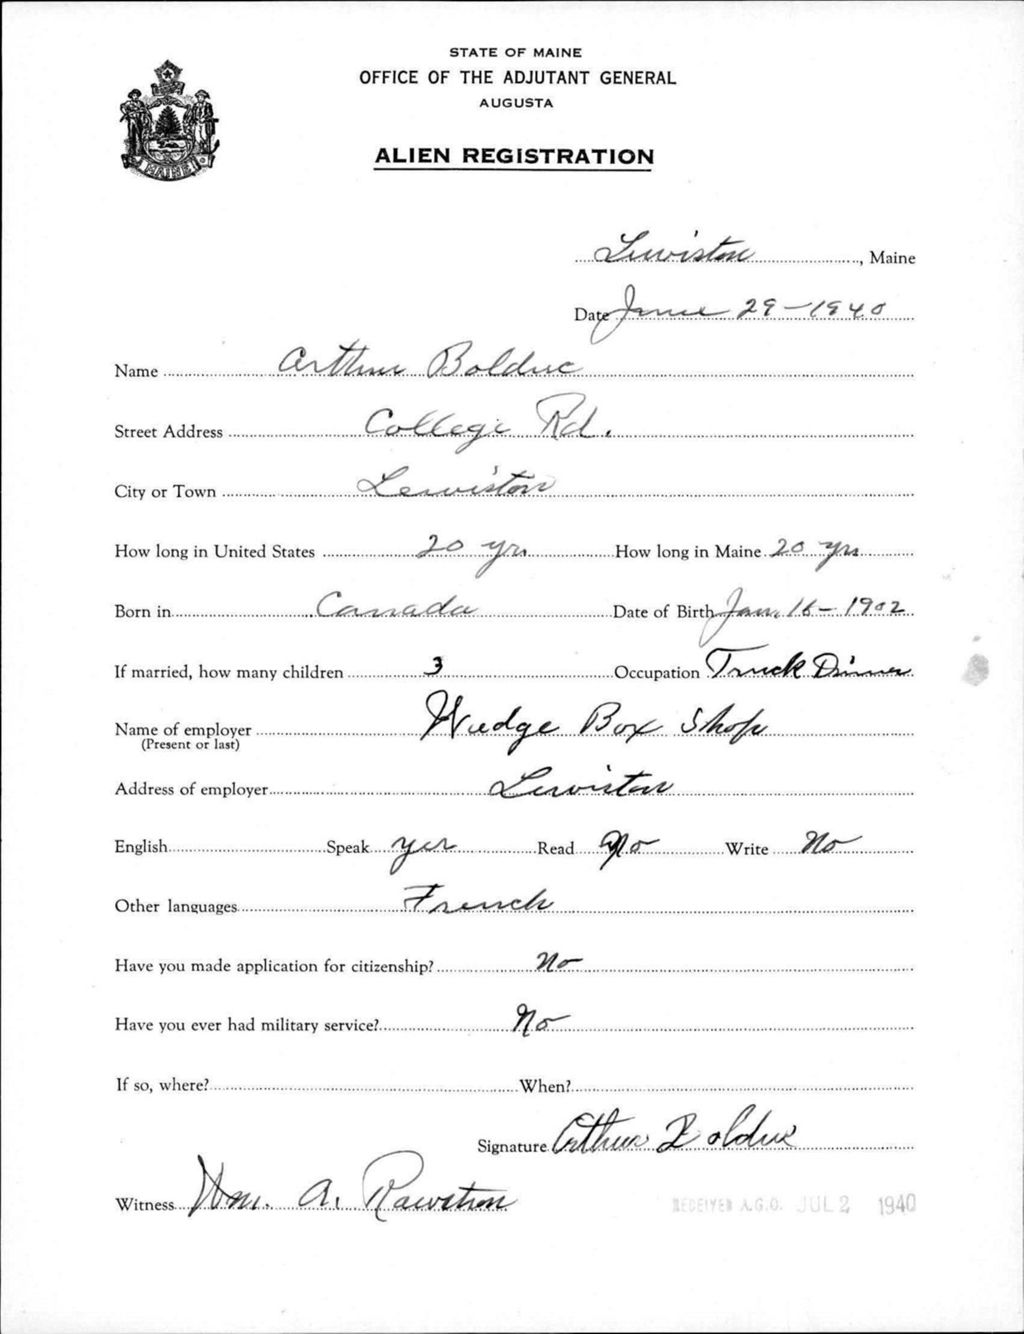 STATE OF MAINE
OFFICE OF THE ADJUTANT GENERAL
AUGUSTA
MAINE
ALIEN REGISTRATION
Lewiston, Maine
Date June 29-1940
Name Arthur Bolduc
Street Address College Rd.
City or Town Lewiston
How long in United States 20 yrs How long in Maine 20 yrs
Born in Canada Date of Birth Jan. 16-1902
If married, how many children 3 Occupation Truck Driver
Name of employer Wedge Box Shop
(Present or last)
Address of employer Lewiston
English Speak yes Read No Write No
Other languages French
Have you made application for citizenship? No
Have you ever had military service? No
If so, where? When?
Signature Arthur Bolduc
Witness Wm. A. Rawstron
RECEIVED A.G.O. JUL 2 1940